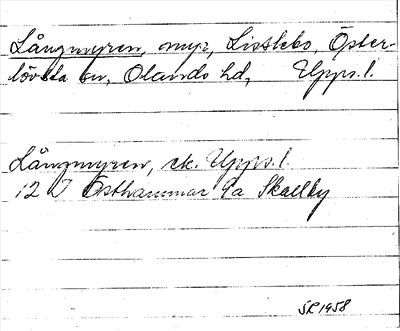 Långmyren, myr, Lisslebo, Öster-
lövsta sn, Olands hd, Upps. l.
Långmyren, ek. Upps. l.
12 I Östhammar 9a Skaelby
SR 1958